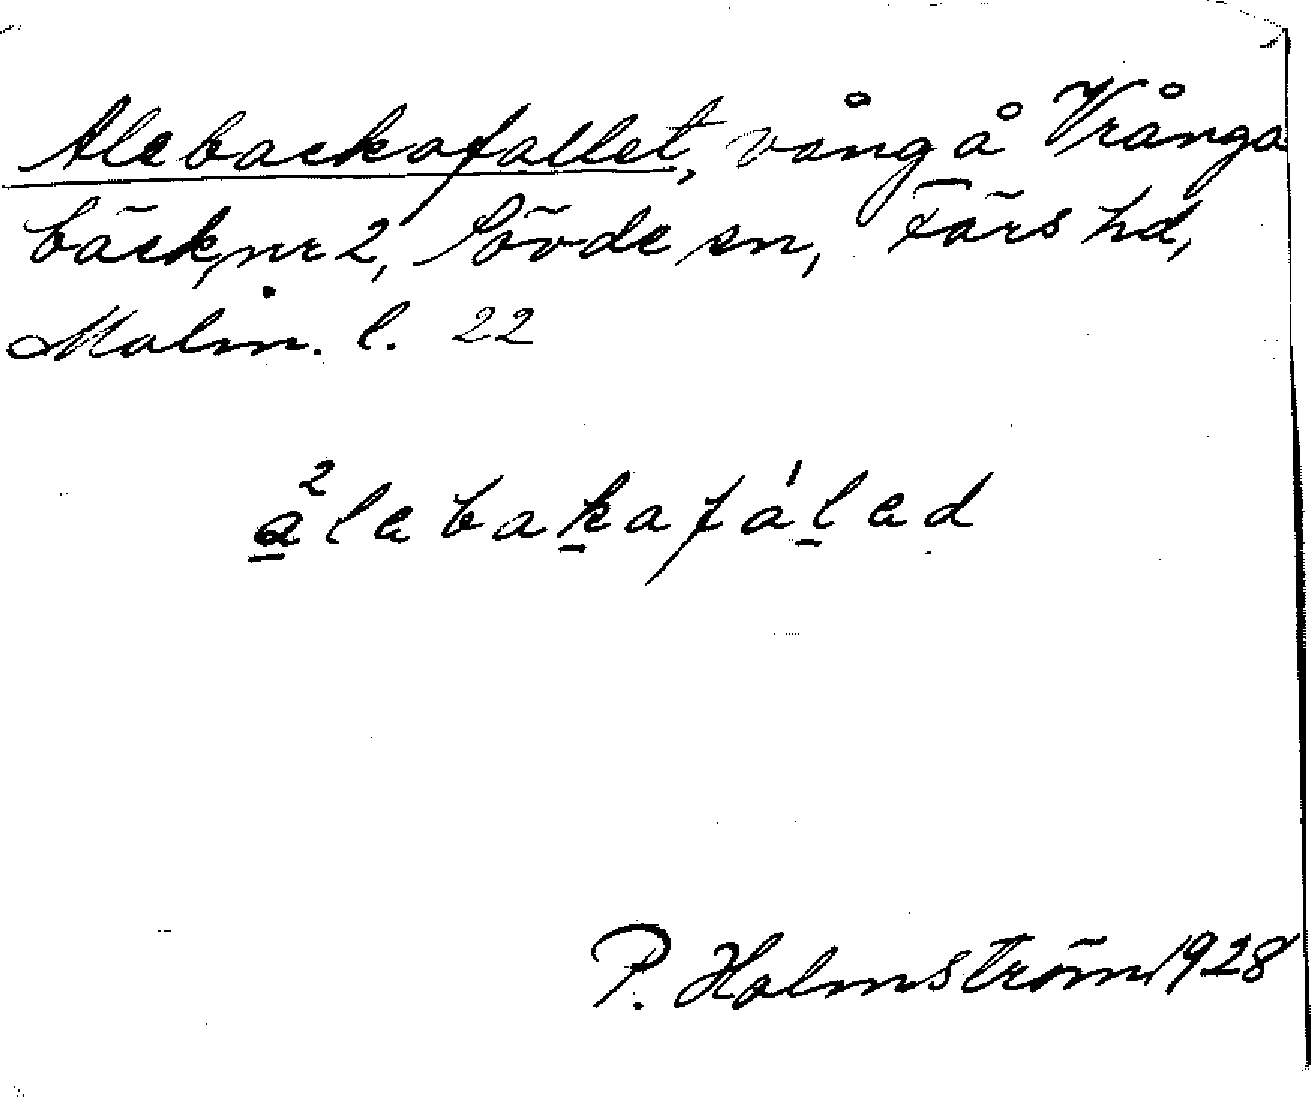 Alebackafallet, vång å Vrånga
bäck, nr 2, Sövde sn, Färs hd,
Malm. l. 22
a̱²lebaḵafa̍ḻad
P. Holmström 1928